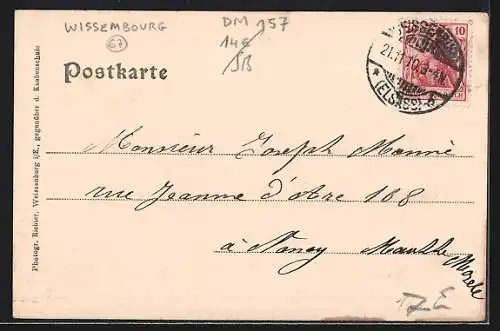 WISSEMBOURG
67
DM 157
14€
Postkarte
10
WEISSENBURG
21.11.10.
* (ELSASS) *
Monsieur Joseph
rue Jeanne d'Arc 168
à Nancy Meurthe
Moselle
Photogr. Riebler, Weissenburg i/E., gegenüber d. Knabenschule